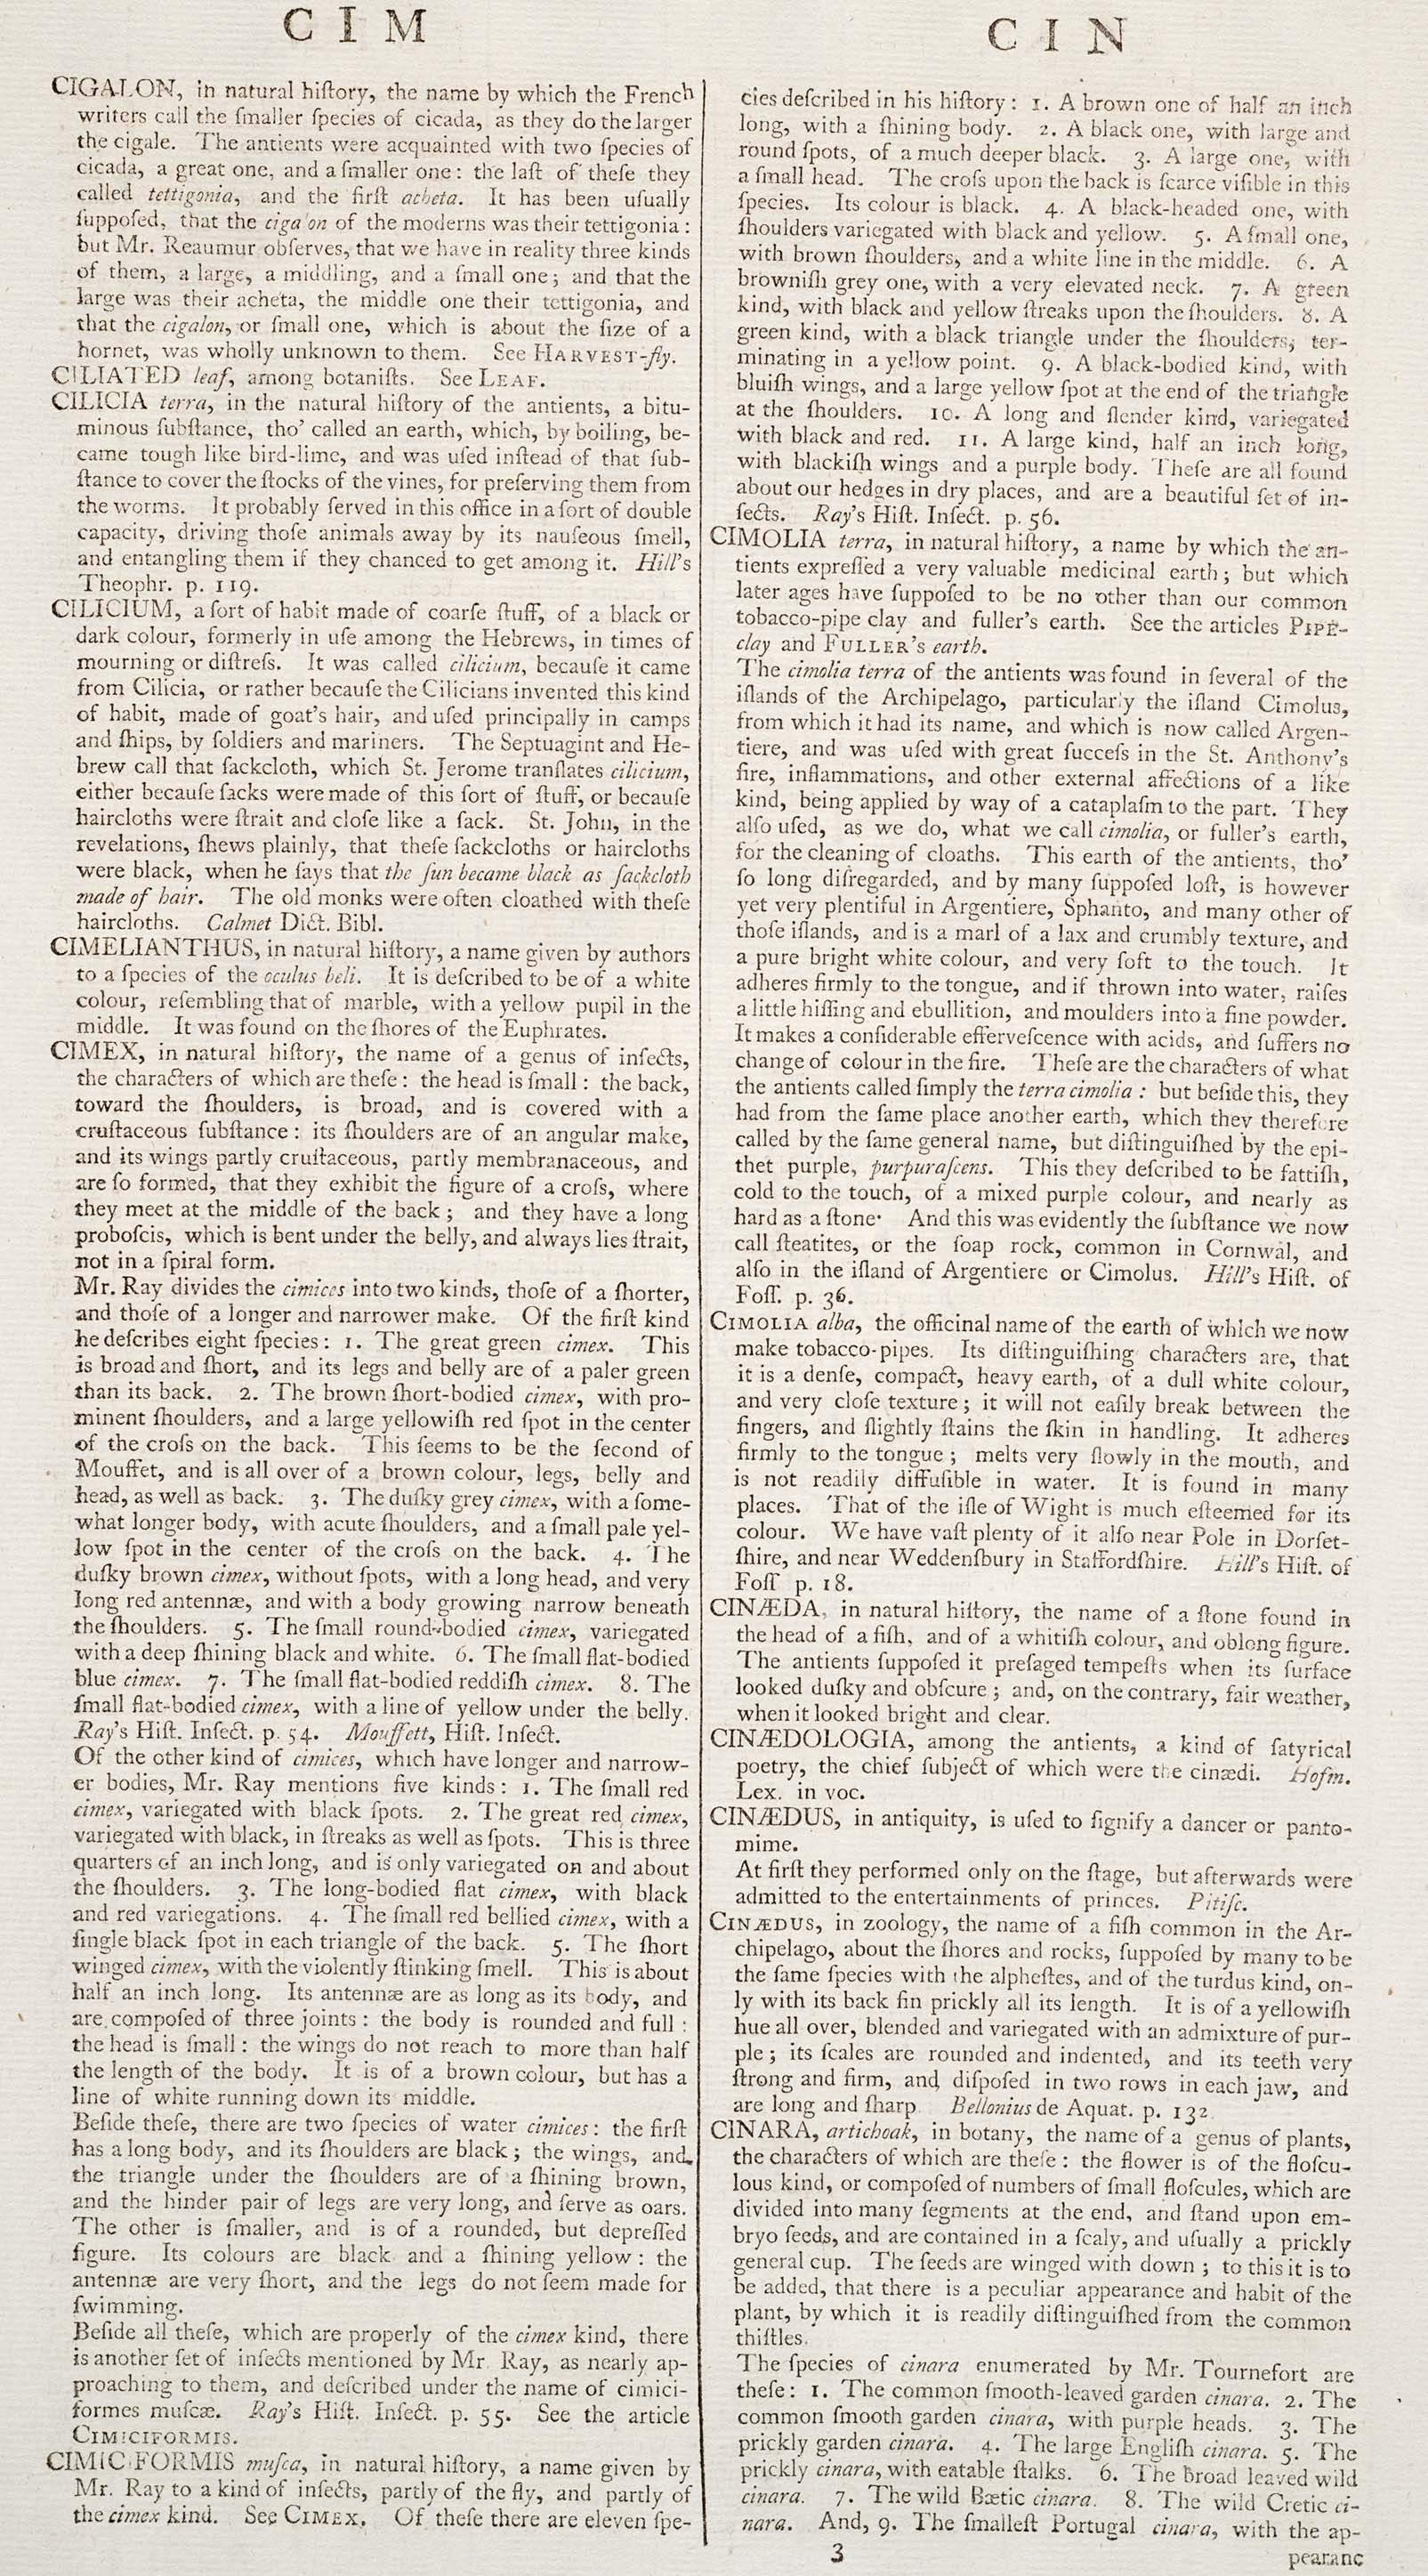 C I M
CIGALON, in natural hiſtory, the name by which the French
writers call the ſmaller ſpecies of cicada, as they do the larger
the cigale. The antients were acquainted with two ſpecies of
cicada, a great one, and a ſmaller one: the laſt of theſe they
called tettigonia, and the firſt acheta. It has been uſually
ſuppoſed, that the ciga'on of the moderns was their tettigonia:
but Mr. Reaumur obſerves, that we have in reality three kinds
of them, a large, a middling, and a ſmall one; and that the
large was their acheta, the middle one their tettigonia, and
that the cigalon, or ſmall one, which is about the ſize of a
hornet, was wholly unknown to them. See HARVEST-fly.
CILIATED leaf, among botaniſts. See LEAF.
CILICIA terra, in the natural hiſtory of the antients, a bitu-
minous ſubſtance, tho' called an earth, which, by boiling, be-
came tough like bird-lime, and was uſed inſtead of that ſub-
ſtance to cover the ſtocks of the vines, for preſerving them from
the worms. It probably ſerved in this office in a ſort of double
capacity, driving thoſe animals away by its nauſeous ſmell,
and entangling them if they chanced to get among it. Hill's
Theophr. p. 119.
CILICIUM, a ſort of habit made of coarſe ſtuff, of a black or
dark colour, formerly in uſe among the Hebrews, in times of
mourning or diſtreſs. It was called cilicium, becauſe it came
from Cilicia, or rather becauſe the Cilicians invented this kind
of habit, made of goat's hair, and uſed principally in camps
and ſhips, by ſoldiers and mariners. The Septuagint and He-
brew call that ſackcloth, which St. Jerome tranſlates cilicium,
either becauſe ſacks were made of this ſort of ſtuff, or becauſe
haircloths were ſtrait and cloſe like a ſack. St. John, in the
revelations, ſhews plainly, that theſe ſackcloths or haircloths
were black, when he ſays that the ſun became black as ſackcloth
made of hair. The old monks were often cloathed with theſe
haircloths. Calmet Dict. Bibl.
CIMELIANTHUS, in natural hiſtory, a name given by authors
to a ſpecies of the oculus beli. It is deſcribed to be of a white
colour, reſembling that of marble, with a yellow pupil in the
middle. It was found on the ſhores of the Euphrates.
CIMEX, in natural hiſtory, the name of a genus of inſects,
the characters of which are theſe: the head is ſmall: the back,
toward the ſhoulders, is broad, and is covered with a
cruſtaceous ſubſtance: its ſhoulders are of an angular make,
and its wings partly cruſtaceous, partly membranaceous, and
are ſo formed, that they exhibit the figure of a croſs, where
they meet at the middle of the back; and they have a long
proboſcis, which is bent under the belly, and always lies ſtrait,
not in a ſpiral form.
Mr. Ray divides the cimices into two kinds, thoſe of a ſhorter,
and thoſe of a longer and narrower make. Of the firſt kind
he deſcribes eight ſpecies: 1. The great green cimex. This
is broad and ſhort, and its legs and belly are of a paler green
than its back. 2. The brown ſhort-bodied cimex, with pro-
minent ſhoulders, and a large yellowiſh red ſpot in the center
of the croſs on the back. This ſeems to be the ſecond of
Mouffet, and is all over of a brown colour, legs, belly and
head, as well as back. 3. The duſky grey cimex, with a ſome-
what longer body, with acute ſhoulders, and a ſmall pale yel-
low ſpot in the center of the croſs on the back. 4. The
duſky brown cimex, without ſpots, with a long head, and very
long red antennæ, and with a body growing narrow beneath
the ſhoulders. 5. The ſmall round-bodied cimex, variegated
with a deep ſhining black and white. 6. The ſmall flat-bodied
blue cimex. 7. The ſmall flat-bodied reddiſh cimex. 8. The
ſmall flat-bodied cimex, with a line of yellow under the belly.
Ray's Hiſt. Inſect. p. 54. Mouffett, Hiſt. Inſect.
Of the other kind of cimices, which have longer and narrow-
er bodies, Mr. Ray mentions five kinds: 1. The ſmall red
cimex, variegated with black ſpots. 2. The great red cimex,
variegated with black, in ſtreaks as well as ſpots. This is three
quarters of an inch long, and is only variegated on and about
the ſhoulders. 3. The long-bodied flat cimex, with black
and red variegations. 4. The ſmall red bellied cimex, with a
ſingle black ſpot in each triangle of the back. 5. The ſhort
winged cimex, with the violently ſtinking ſmell. This is about
half an inch long. Its antennæ are as long as its body, and
are compoſed of three joints: the body is rounded and full:
the head is ſmall: the wings do not reach to more than half
the length of the body. It is of a brown colour, but has a
line of white running down its middle.
Beſide theſe, there are two ſpecies of water cimices: the firſt
has a long body, and its ſhoulders are black; the wings, and
the triangle under the ſhoulders are of a ſhining brown,
and the hinder pair of legs are very long, and ſerve as oars.
The other is ſmaller, and is of a rounded, but depreſſed
figure. Its colours are black and a ſhining yellow: the
antennæ are very ſhort, and the legs do not ſeem made for
ſwimming.
Beſide all theſe, which are properly of the cimex kind, there
is another ſet of inſects mentioned by Mr. Ray, as nearly ap-
proaching to them, and deſcribed under the name of cimici-
formes muſcæ. Ray's Hiſt. Inſect. p. 55. See the article
CIMICIFORMIS.
CIMICIFORMIS muſca, in natural hiſtory, a name given by
Mr. Ray to a kind of inſects, partly of the fly, and partly of
the cimex kind. See CIMEX. Of theſe there are eleven ſpe-
C I N
cies deſcribed in his hiſtory: 1. A brown one of half an inch
long, with a ſhining body. 2. A black one, with large and
round ſpots, of a much deeper black. 3. A large one, with
a ſmall head. The croſs upon the back is ſcarce viſible in this
ſpecies. Its colour is black. 4. A black-headed one, with
ſhoulders variegated with black and yellow. 5. A ſmall one,
with brown ſhoulders, and a white line in the middle. 6. A
browniſh grey one, with a very elevated neck. 7. A green
kind, with black and yellow ſtreaks upon the ſhoulders. 8. A
green kind, with a black triangle under the ſhoulders, ter-
minating in a yellow point. 9. A black-bodied kind, with
bluiſh wings, and a large yellow ſpot at the end of the triangle
at the ſhoulders. 10. A long and ſlender kind, variegated
with black and red. 11. A large kind, half an inch long,
with blackiſh wings and a purple body. Theſe are all found
about our hedges in dry places, and are a beautiful ſet of in-
ſects. Ray's Hiſt. Inſect. p. 56.
CIMOLIA terra, in natural hiſtory, a name by which the an-
tients expreſſed a very valuable medicinal earth; but which
later ages have ſuppoſed to be no other than our common
tobacco-pipe clay and fuller's earth. See the articles PIPE-
clay and FULLER's earth.
The cimolia terra of the antients was found in ſeveral of the
iſlands of the Archipelago, particularly the iſland Cimolus,
from which it had its name, and which is now called Argen-
tiere, and was uſed with great ſucceſs in the St. Anthony's
fire, inflammations, and other external affections of a like
kind, being applied by way of a cataplaſm to the part. They
alſo uſed, as we do, what we call cimolia, or fuller's earth,
for the cleaning of cloaths. This earth of the antients, tho'
ſo long diſregarded, and by many ſuppoſed loſt, is however
yet very plentiful in Argentiere, Sphanto, and many other of
thoſe iſlands, and is a marl of a lax and crumbly texture, and
a pure bright white colour, and very ſoft to the touch. It
adheres firmly to the tongue, and if thrown into water, raiſes
a little hiſſing and ebullition, and moulders into a fine powder.
It makes a conſiderable efferveſcence with acids, and ſuffers no
change of colour in the fire. Theſe are the characters of what
the antients called ſimply the terra cimolia: but beſide this, they
had from the ſame place another earth, which they therefore
called by the ſame general name, but diſtinguiſhed by the epi-
thet purple, purpuraſcens. This they deſcribed to be fattiſh,
cold to the touch, of a mixed purple colour, and nearly as
hard as a ſtone· And this was evidently the ſubſtance we now
call ſteatites, or the ſoap rock, common in Cornwal, and
alſo in the iſland of Argentiere or Cimolus. Hill's Hiſt. of
Foſſ. p. 36.
CIMOLIA alba, the officinal name of the earth of which we now
make tobacco-pipes. Its diſtinguiſhing characters are, that
it is a denſe, compact, heavy earth, of a dull white colour,
and very cloſe texture; it will not eaſily break between the
fingers, and ſlightly ſtains the ſkin in handling. It adheres
firmly to the tongue; melts very ſlowly in the mouth, and
is not readily diffuſible in water. It is found in many
places. That of the iſle of Wight is much eſteemed for its
colour. We have vaſt plenty of it alſo near Pole in Dorſet-
ſhire, and near Weddenſbury in Staffordſhire. Hill's Hiſt. of
Foſſ p. 18.
CINÆDA, in natural hiſtory, the name of a ſtone found in
the head of a fiſh, and of a whitiſh colour, and oblong figure.
The antients ſuppoſed it preſaged tempeſts when its ſurface
looked duſky and obſcure; and, on the contrary, fair weather,
when it looked bright and clear.
CINÆDOLOGIA, among the antients, a kind of ſatyrical
poetry, the chief ſubject of which were the cinædi. Hofm.
Lex. in voc.
CINÆDUS, in antiquity, is uſed to ſignify a dancer or panto-
mime.
At firſt they performed only on the ſtage, but afterwards were
admitted to the entertainments of princes. Pitiſc.
CINÆDUS, in zoology, the name of a fiſh common in the Ar-
chipelago, about the ſhores and rocks, ſuppoſed by many to be
the ſame ſpecies with the alpheſtes, and of the turdus kind, on-
ly with its back fin prickly all its length. It is of a yellowiſh
hue all over, blended and variegated with an admixture of pur-
ple; its ſcales are rounded and indented, and its teeth very
ſtrong and firm, and diſpoſed in two rows in each jaw, and
are long and ſharp Bellonius de Aquat. p. 132
CINARA, artichoak, in botany, the name of a genus of plants,
the characters of which are theſe: the flower is of the floſcu-
lous kind, or compoſed of numbers of ſmall floſcules, which are
divided into many ſegments at the end, and ſtand upon em-
bryo ſeeds, and are contained in a ſcaly, and uſually a prickly
general cup. The ſeeds are winged with down; to this it is to
be added, that there is a peculiar appearance and habit of the
plant, by which it is readily diſtinguiſhed from the common
thiſtles.
The ſpecies of cinara enumerated by Mr. Tournefort are
theſe: 1. The common ſmooth-leaved garden cinara. 2. The
common ſmooth garden cinara, with purple heads. 3. The
prickly garden cinara. 4. The large Engliſh cinara. 5. The
prickly cinara, with eatable ſtalks. 6. The broad leaved wild
cinara. 7. The wild Bætic cinara. 8. The wild Cretic ci-
nara. And, 9. The ſmalleſt Portugal cinara, with the ap-
3
pearanc